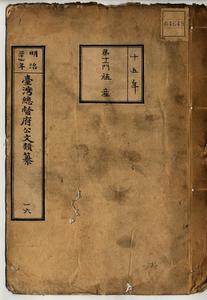 十五年
第十門 殖產
明治
年
臺灣總督府公文類纂
一六